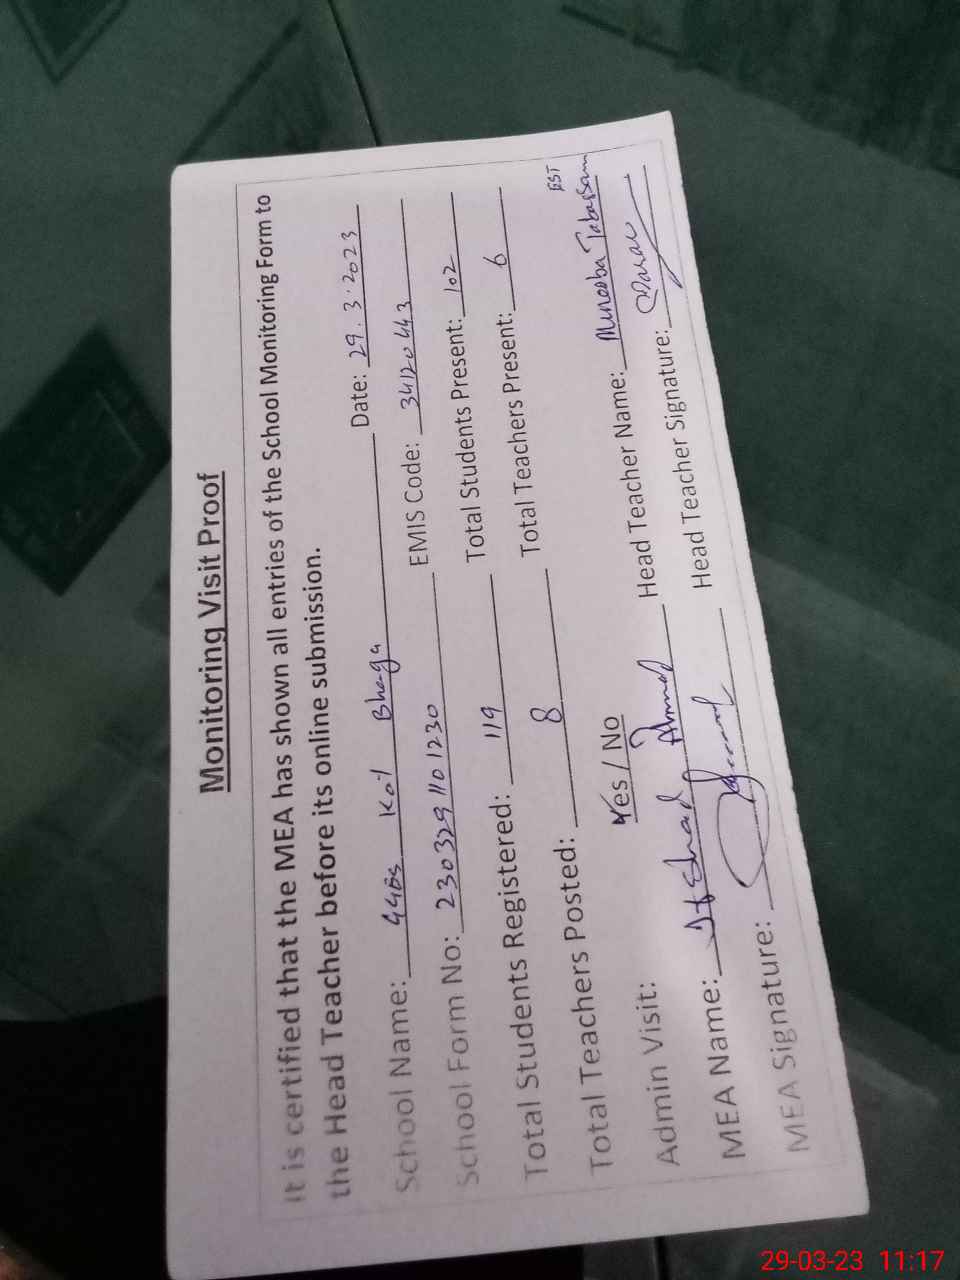 Monitoring Visit Proof
It is certified that the MEA has shown all entries of the School Monitoring Form to
the Head Teacher before its online submission.
School Name: GGES Kot Bhaga Date: 29.3.2023
School Form No: 2303291101230 EMIS Code: 34120443
Total Students Registered: 119 Total Students Present: 102
Total Teachers Posted: 8 Total Teachers Present: 6
EST
Admin Visit: Yes / No Head Teacher Name: Muneeba Tabassam
MEA Name: Ahmad Head Teacher Signature:
MEA Signature:
29-03-23 11:17